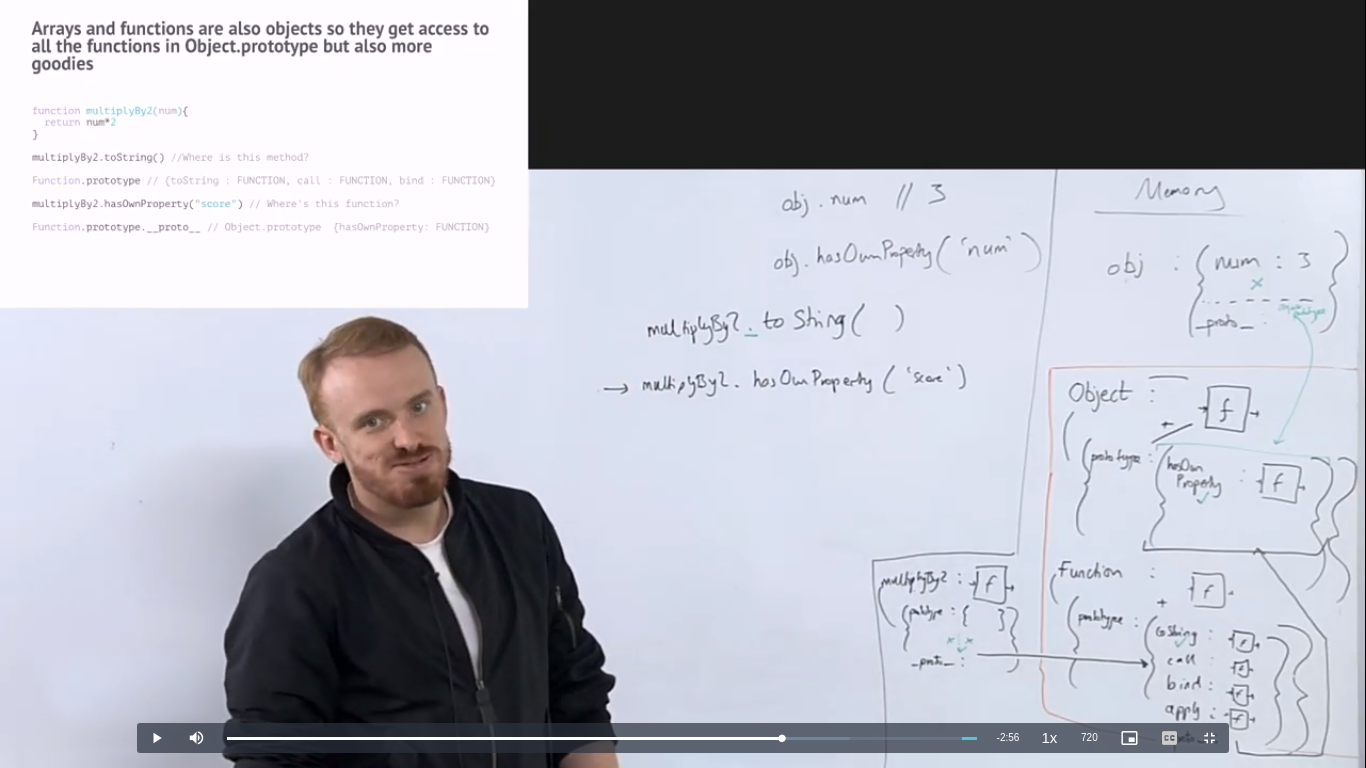 Arrays and functions are also objects so they get access to
all the functions in Object.prototype but also more
goodies
function multiplyBy2(num){
return num*2
}
multiplyBy2.toString() //Where is this method?
Function.prototype // {toString : FUNCTION, call : FUNCTION, bind : FUNCTION}
multiplyBy2.hasOwnProperty("score") // Where's this function?
Function.prototype.__proto__ // Object.prototype {hasOwnProperty: FUNCTION}
obj.num // 3
obj.hasOwnProperty('num')
multiplyBy2.toString( )
→ multiplyBy2.hasOwnProperty('score')
Memory
obj : { num : 3
_proto_ :
Object :
f
+
prototype : { hasOwn
Property : f
multiplyBy2 : f
prototype : { }
_proto_ :
Function :
+ f
prototype : { toString : f
call : f
bind : f
apply : f
-2:56
1x
720
CC